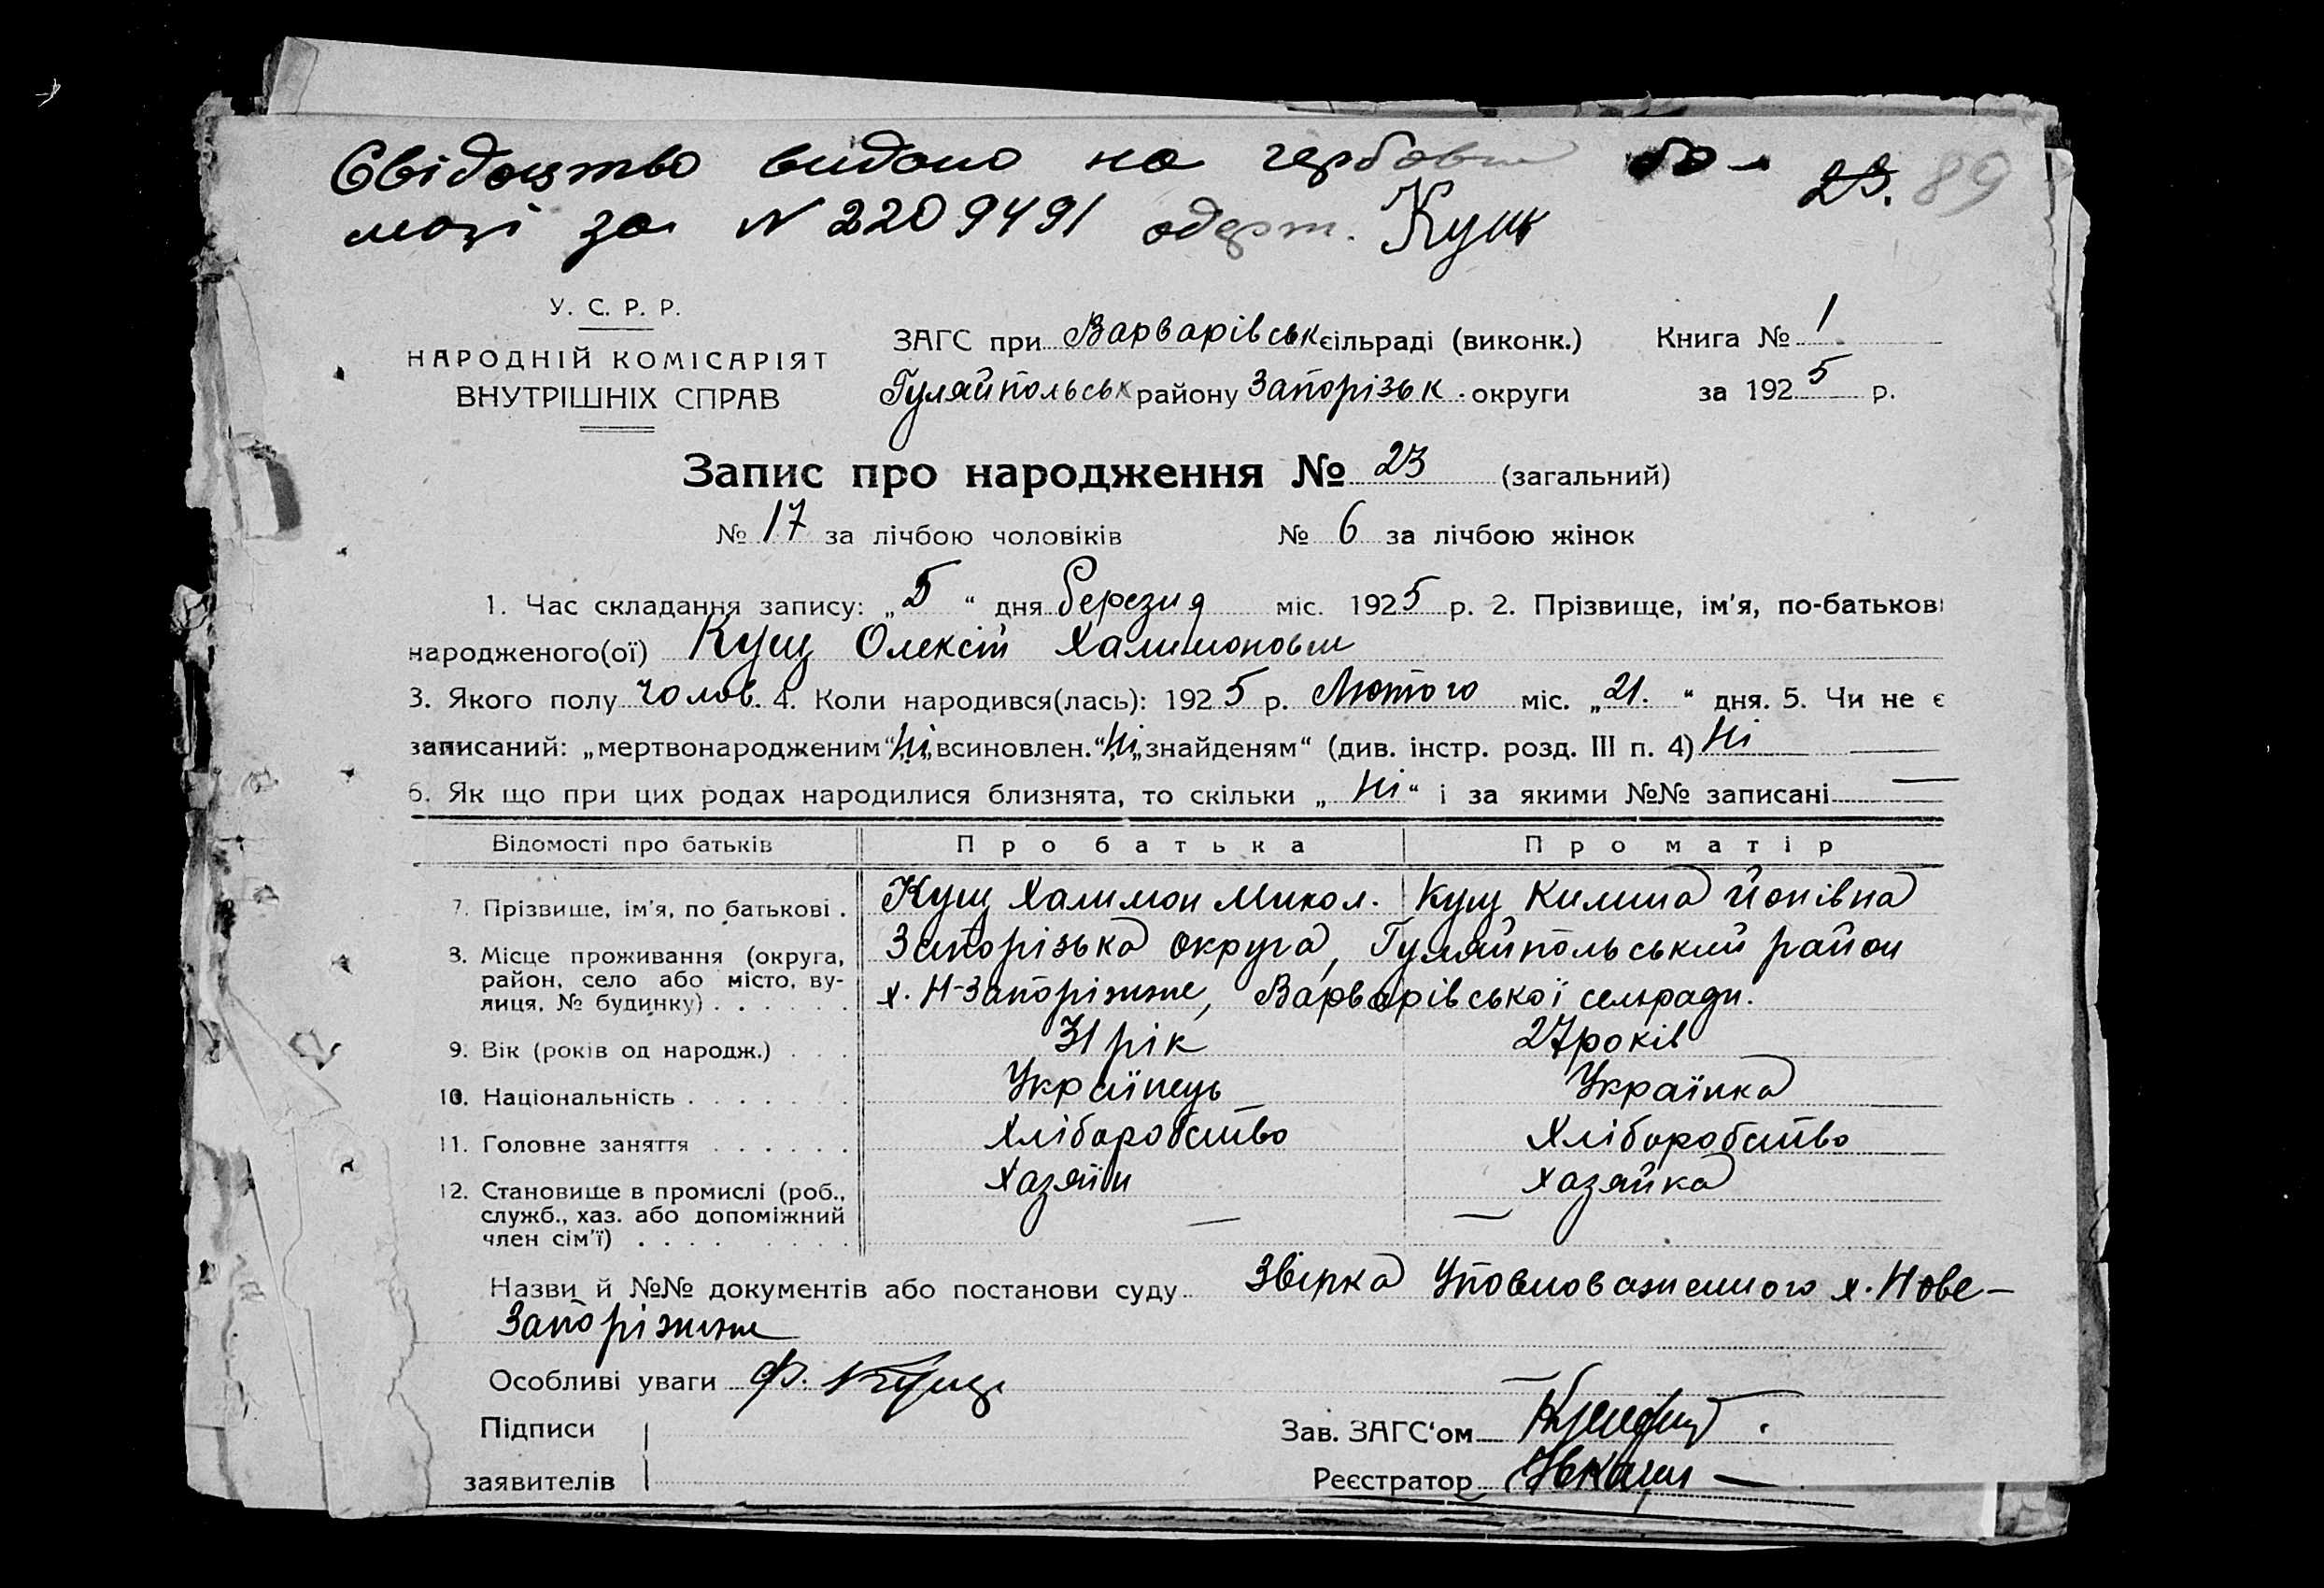 Свідоцтво видано на гербові бо- 23. 89
мозі за N 2209491 одерж. Кущ
У. С. Р. Р.
НАРОДНІЙ КОМІСАРІЯТ
ВНУТРІШНІХ СПРАВ
ЗАГС при Варварівськ сільраді (виконк.) Книга № 1
Гуляйпольськ району Запорізьк. округи за 1925 р.
Запис про народження № 23 (загальний)
№ 17 за лічбою чоловіків № 6 за лічбою жінок
1. Час складання запису: „5“ дня березня міс. 1925 р. 2. Прізвище, ім'я, по-батькові
народженого(ої) Кущ Олексій Халимонови
3. Якого полу чолов. 4. Коли народився(лась): 1925 р. Лютого міс. „21.“ дня. 5. Чи не є
записаний: „мертвонародженим“ Ні, „всиновлен.“ Ні, „знайденям“ (див. інстр. розд. III п. 4) Ні —
6. Як що при цих родах народилися близнята, то скільки „Ні“ і за якими №№ записані —
Відомості про батьків Про батька Про матір
7. Прізвище, ім'я, по батькові . Кущ Халимон Микол. Кущ Килина Йонівна
8. Місце проживання (округа, район, село або місто, ву-лиця, № будинку) . . . . . . Запорізька округа, Гуляйпольський район
х. Н-Запоріжже, Варварівської сельради.
9. Вік (років од народж.) . . . 31 рік 27 років
10. Національність . . . . . . . Українець Українка
11. Головне заняття . . . . . . Хліборобство Хліборобство
12. Становище в промислі (роб., Хазяїн Хазяйка
служб., хаз. або допоміжний — —
член сім'ї) . . . . . . . .
Назви й №№ документів або постанови суду Звірка Уповноваженного х. Ново-
Запоріжже
Особливі уваги Ф. Кущ —
Підписи Зав. ЗАГС'ом
заявителів Реєстратор